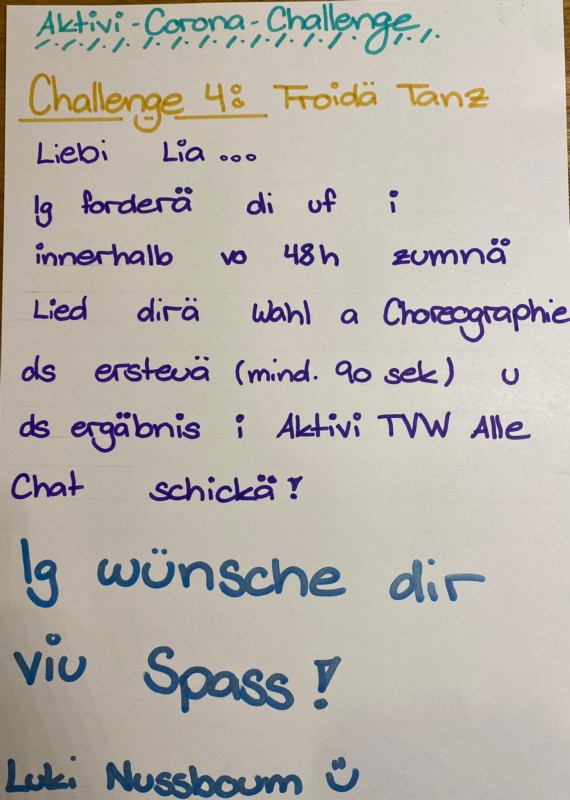 Aktivi-Corona-Challenge
Challenge 4: Froidä Tanz
Liebi Lia...
Ig forderä di uf i
innerhalb vo 48h zumnä
Lied dirä Wahl a Choreographie
ds ersteuä (mind. 90 sek) u
ds ergäbnis i Aktivi TVW Alle
Chat schickä!
Ig wünsche dir
viu Spass!
Luki Nussboum